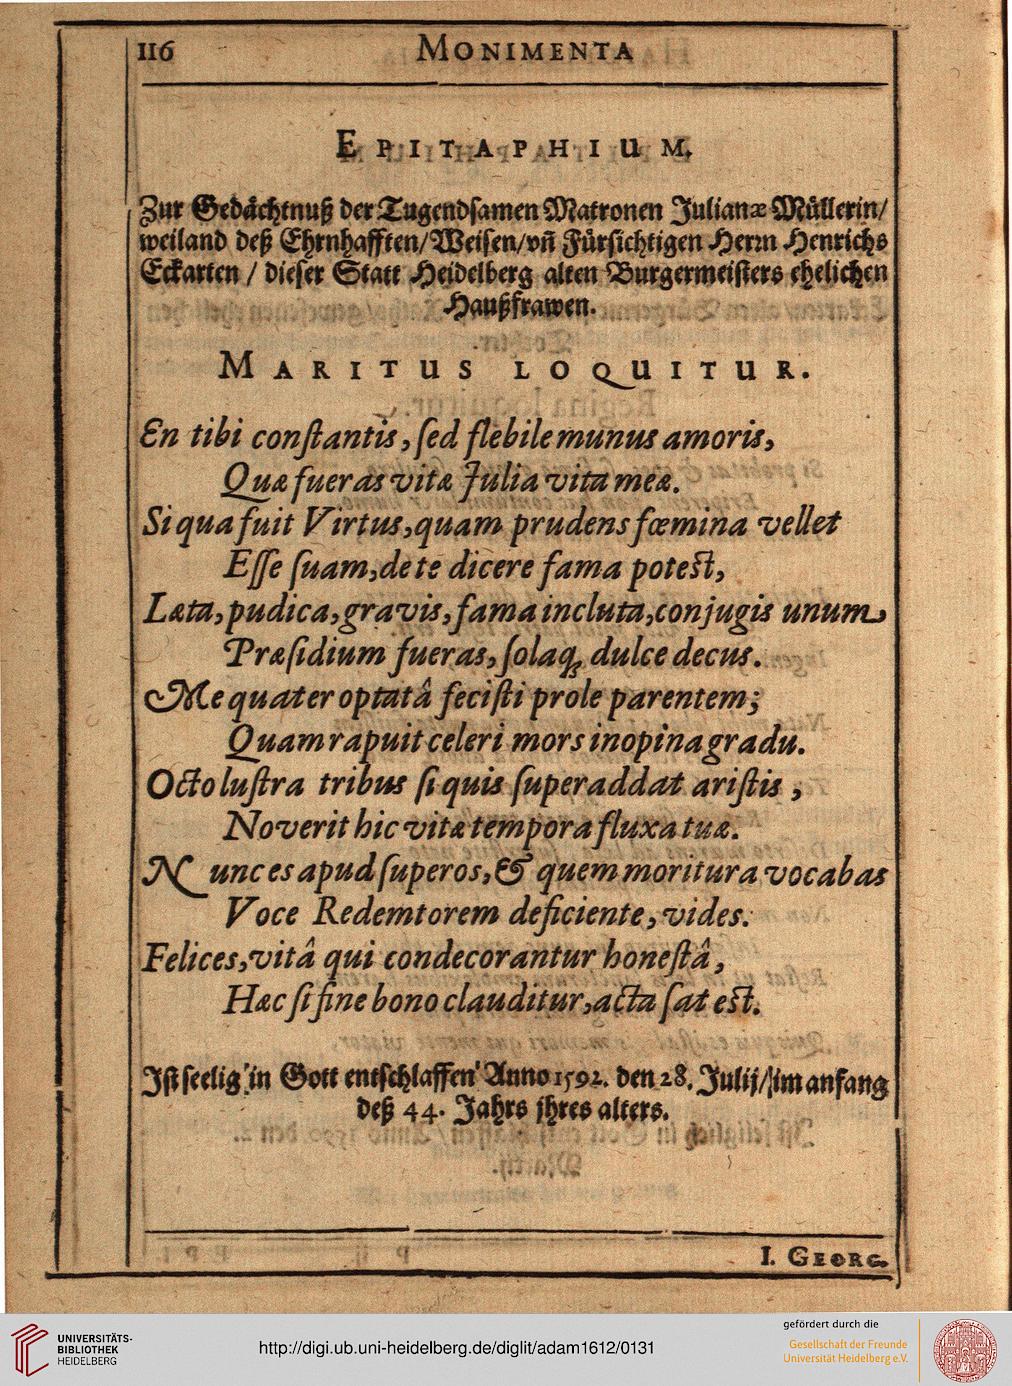 116 MONIMENTA
EPITAPHIUM.
Zur Gedächtnuß der Tugendsamen Matronen Julianæ Müllerin/
weiland deß Ehrnhafften/Weisen/vñ Fürsichtigen Herrn Henrichs
Eckarten / dieser Statt Heidelberg alten Burgermeisters ehelichen
Haußfrawen.
MARITUS LOQUITUR.
En tibi constantis, sed flebile munus amoris,
Quæ fueras vitæ Julia vita meæ.
Si qua fuit Virtus, quam prudens fœmina vellet
Esse suam, de te dicere fama potest,
Læta, pudica, gravis, fama incluta, conjugis unum
Præsidium fueras, solaq; dulce decus.
Me quater optatâ fecisti prole parentem;
Quam rapuit celeri mors inopina gradu.
Octo lustra tribus si quis superaddat aristis,
Noverit hic vitæ tempora fluxa tuæ.
Nunc es apud superos, & quem moritura vocabas
Voce Redemtorem deficiente, vides.
Felices, vitâ qui condecorantur honestâ,
Hæc si fine bono clauditur, acta sat est.
Ist seelig in Gott entschlaffen Anno 1592. den 28. Julij/ im anfang
deß 44. Jahrs ihres alters.
I. GEORG.
UNIVERSITÄTS-
BIBLIOTHEK
HEIDELBERG
http://digi.ub.uni-heidelberg.de/diglit/adam1612/0131
gefördert durch die
Gesellschaft der Freunde
Universität Heidelberg e.V.